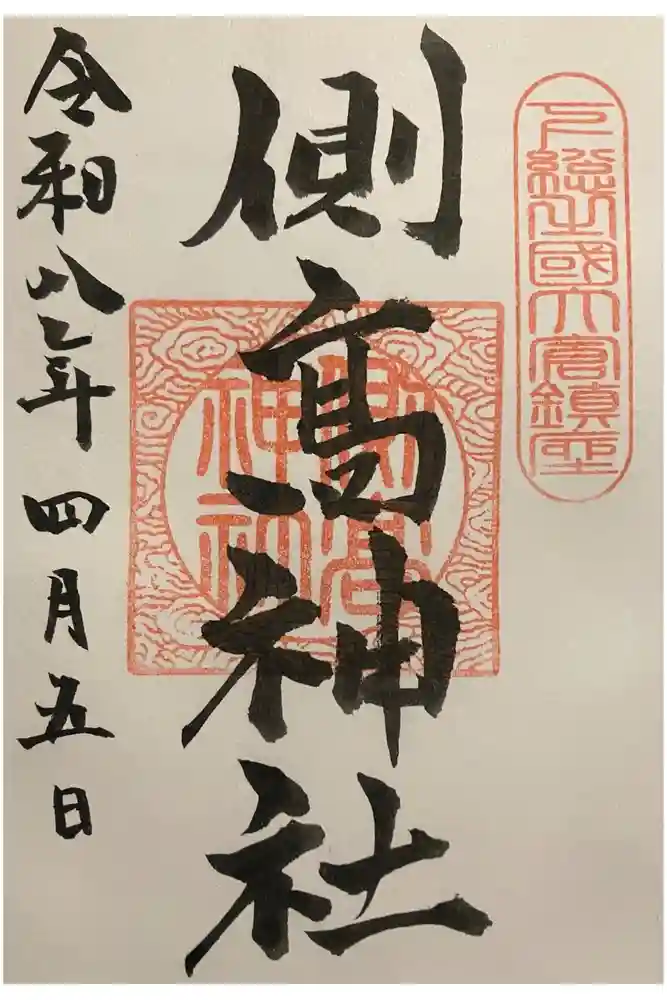 下總之國大倉鎮座
側髙神社
側高
神社
令和八年四月五日